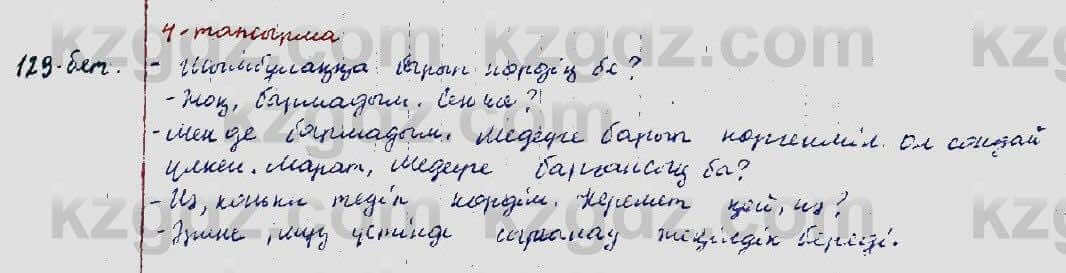 4-тапсырма
129-бет. - Шымбұлаққа барып көрдің бе?
- Жоқ, бармадым. Сен ше?
- Мен де бармадым. Медеуге барып көргенмін. Ол сондай
үлкен. Марат, Медеуге барғансың ба?
- Иә, коньки тедіп көрдім. Керемет қой, иә?
- Әрине, мұз үстінде сырғанау жеңілдік береді.
kzgdz.com